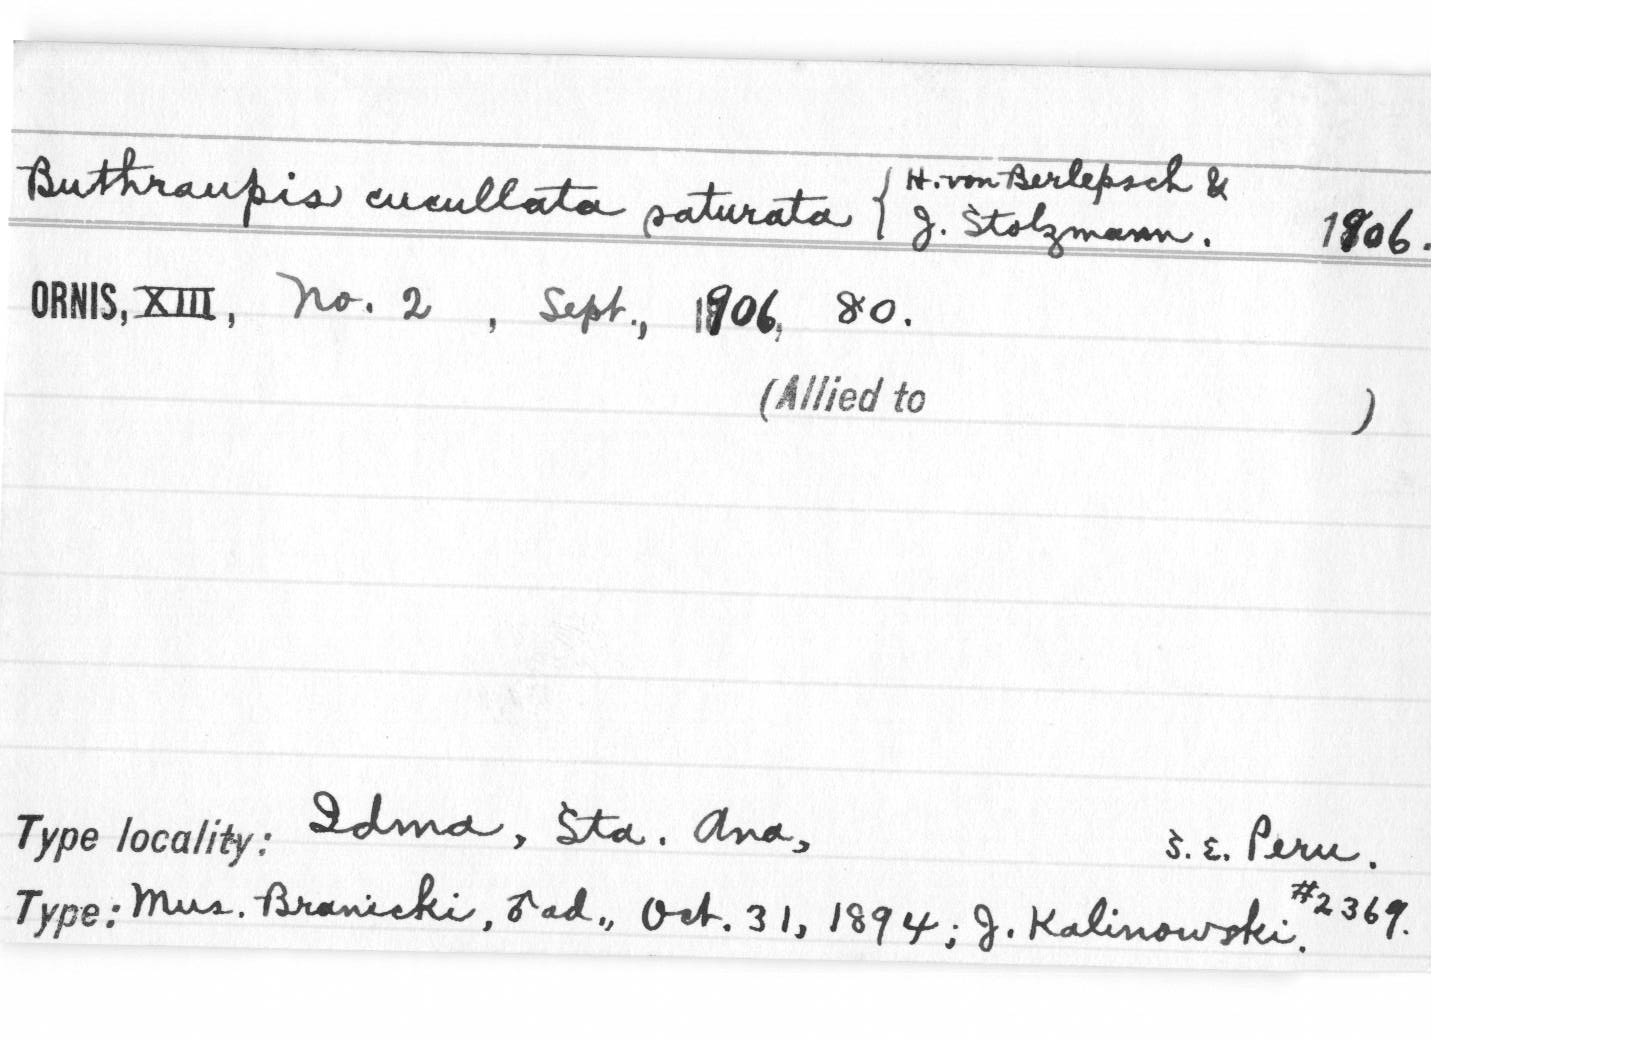 Buthraupis cucullata saturata { H. von Berlepsch &
J. Stolzmann. 1906.
ORNIS, XIII, No. 2, Sept., 1906, 80.
(Allied to )
Type locality: Idma, Sta. Ana, S.E. Peru.
Type: Mus. Branicki, ♂ ad., Oct. 31, 1894; J. Kalinowski. #2369.